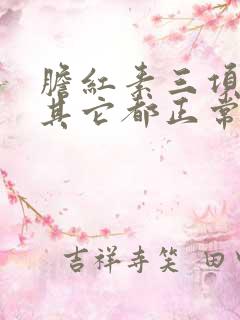 膽紅素三項
其它都正常
吉祥寺笑 田